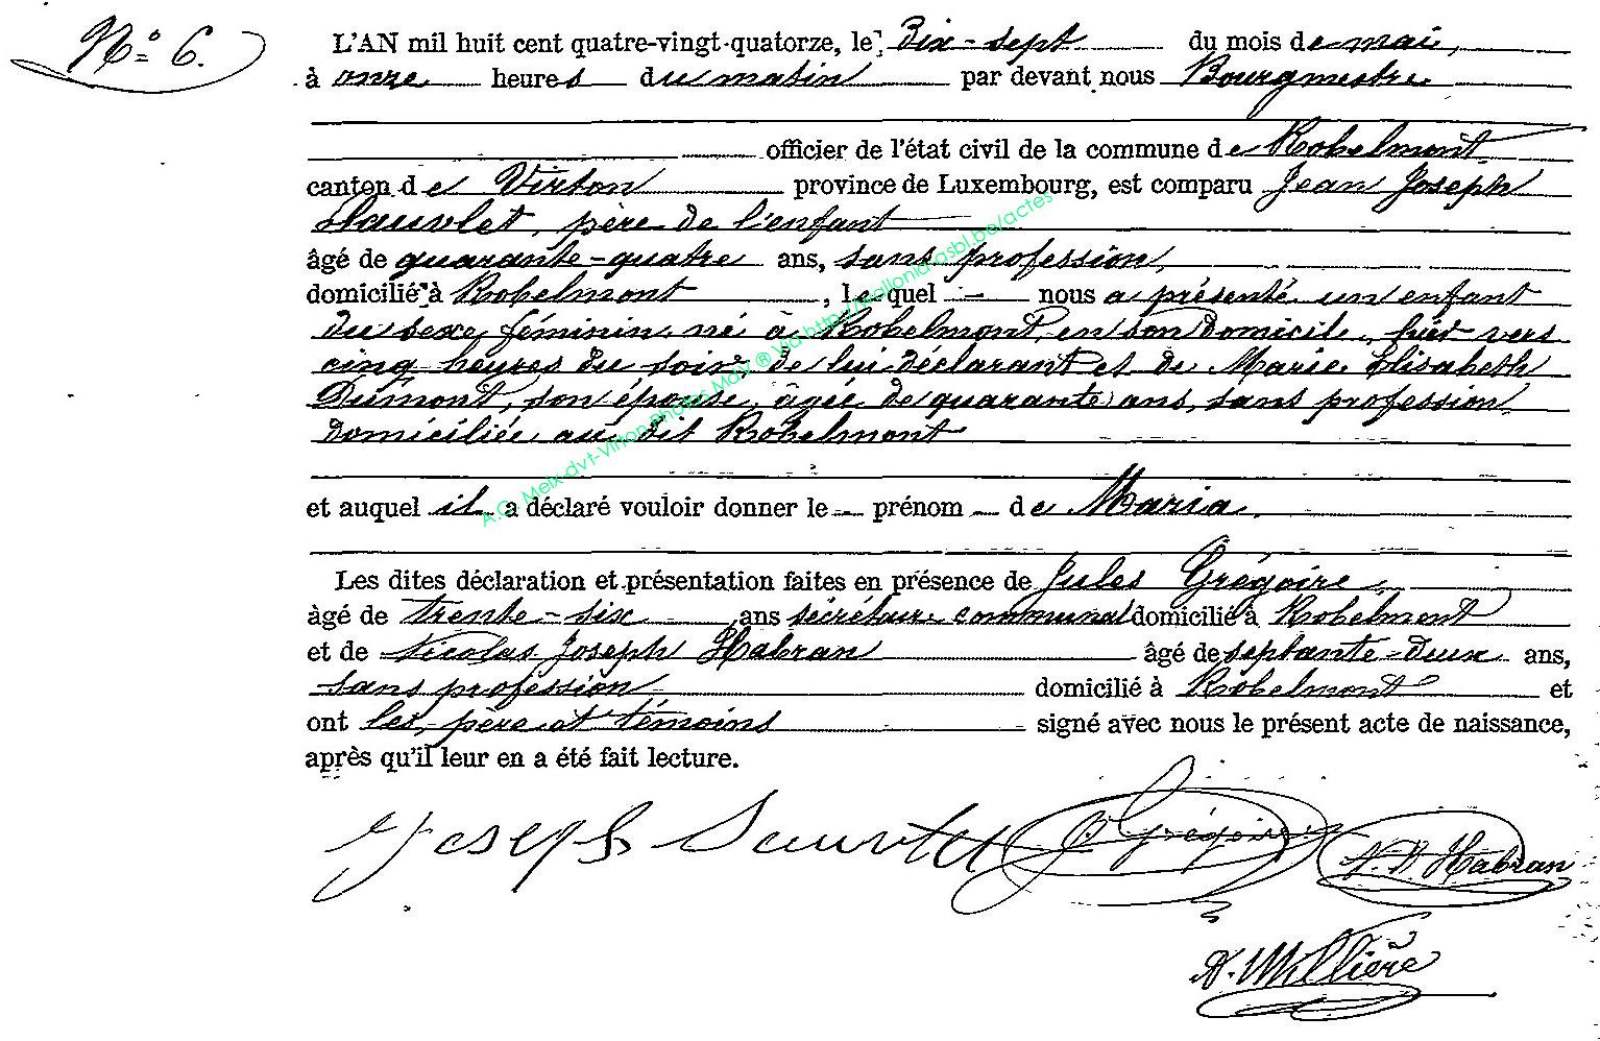 N° 6.
L'AN mil huit cent quatre-vingt-quatorze, le Dix-sept du mois de mai,
à onze heures du matin par devant nous Bourgmestre
officier de l'état civil de la commune de Robelmont
canton de Virton province de Luxembourg, est comparu Jean Joseph
Sauvlet, père de l'enfant
âgé de quarante-quatre ans, sans profession,
domicilié à Robelmont, lequel nous a présenté un enfant
du sexe féminin né à Robelmont, en son domicile, hier vers
cinq heures du soir, de lui déclarant et de Marie Elisabeth
Dumont, son épouse, âgée de quarante ans, sans profession
domiciliée au dit Robelmont
et auquel il a déclaré vouloir donner le prénom de Maria.
Les dites déclaration et présentation faites en présence de Jules Grégoire,
âgé de trente-six ans sécrétaire communal domicilié à Robelmont
et de Nicolas Joseph Habran âgé de septante-deux ans,
sans profession, domicilié à Robelmont et
ont les père et témoins signé avec nous le présent acte de naissance,
après qu'il leur en a été fait lecture.
Joseph Sauvlet J. Grégoire Habran
Millière
A.C. Meix-dvt-Virton Photos Maly ® Via http://wallonia-asbl.be/actes